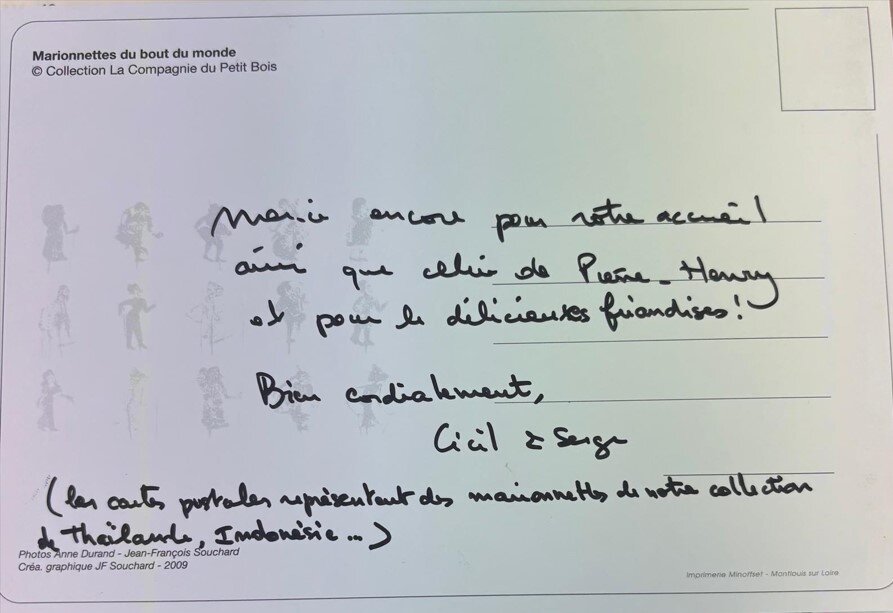 Marionnettes du bout du monde
© Collection La Compagnie du Petit Bois
Merci encore pour votre accueil
ainsi que celui de Pierre-Henry
et pour les délicieuses friandises!
Bien cordialement,
Cécil & Serge
(les cartes postales représentent des marionnettes de notre collection
de Thaïlande, Indonésie ...)
Photos Anne Durand - Jean-François Souchard
Créa. graphique JF Souchard - 2009
Imprimerie Minoffset - Montlouis sur Loire